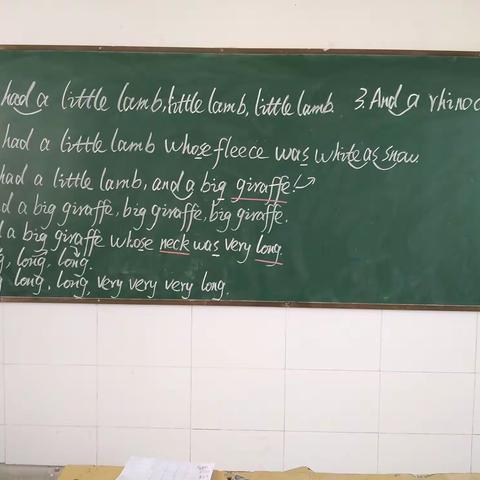 had a little lamb, little lamb, little lamb.
had a little lamb whose fleece was white as snow
had a little lamb, and a big giraffe!
d a big giraffe, big giraffe, big giraffe.
a big giraffe whose neck was very long.
g, long, long.
long, long, very very very long.
3. And a rhinoc